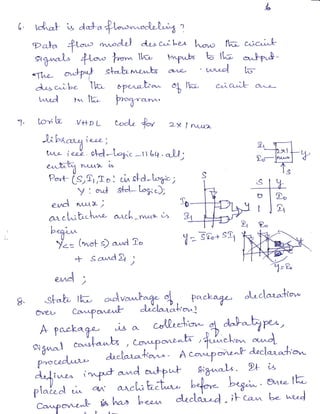 6
6. What is dataflowmodeling?
Data flow model describes how the circuit
signals flow from the inputs to the output.
*The output statements are used to
describe the operation of the circuit are
used in the program
7. Write VHDL code for 2x1 mux
library ieee;
use ieee.std-logic-1164.all;
entity mux is
Port (S,I1,I0: in std-logic;
Y: out std-logic);
end mux;
architecture arch_mux is
begin
Y<= (not S) and I0
+ S and I1;
end;
I1
I0
2x1
mux
y
S
S y
0 I0
1 I1
S
I0
I1
y = S̅I0+SI1
y=I0
8. State the advantage of package declaration
over component declaration?
A package is a collection of datatypes,
signal constants, components, function and
procedure declarations. A component declaration
defines input and output signals. It is
placed in an architecture before begin. Once the
Component has been declared, it can be used